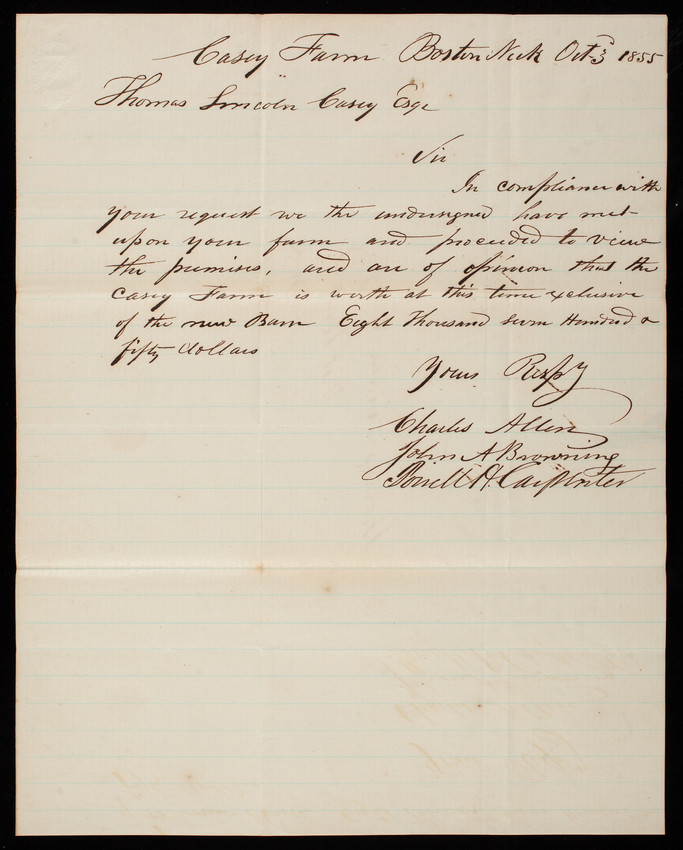 Casey Farm Boston Neck Oct 3 1855
Thomas Lincoln Casey Esqr
Sir
In compliance with
your request we the undersigned have met
upon your farm and proceeded to view
the premises, and are of opinion that the
Casey Farm is worth at this time exclusive
of the new Barn Eight Thousand Seven Hundred &
fifty dollars
Yours Respy
Charles Allen
John A Browning
Powell H. Carpenter